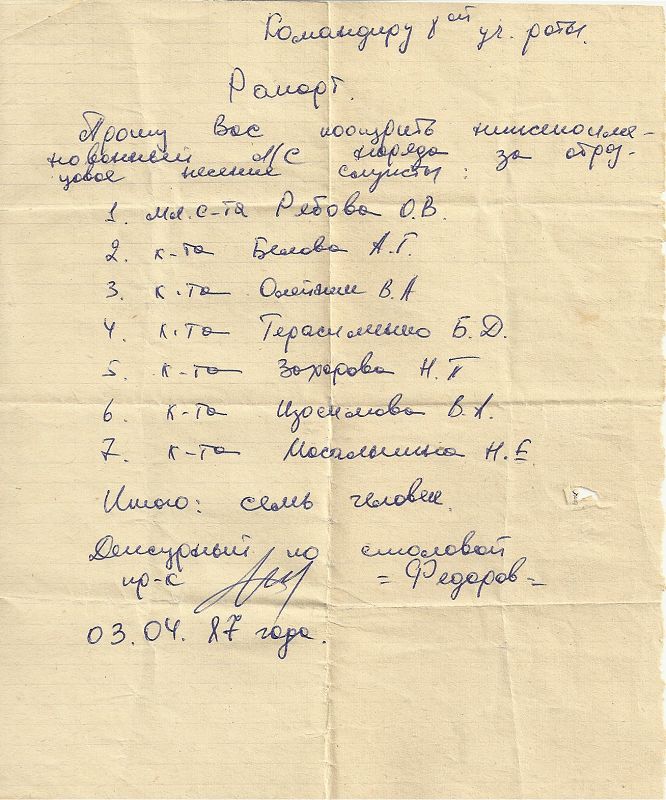 Командиру 8ой уч. роты.
Рапорт.
Прошу Вас поощрить нижепоиме-
нованный Л/С наряда за образ-
цовое несение службы:
1. мл. с-та Рябова О.В.
2. к-та Белова А.Г.
3. к-та Олейник В.А
4. к-та Герасименко Б.Д.
5. к-та Захарова Н.П
6. к-та Изосимова В.А.
7. к-та Мосальникова Н.Е.
Итого: семь человек.
Дежурный по столовой
пр-к =Федоров=
03.04.87 года.